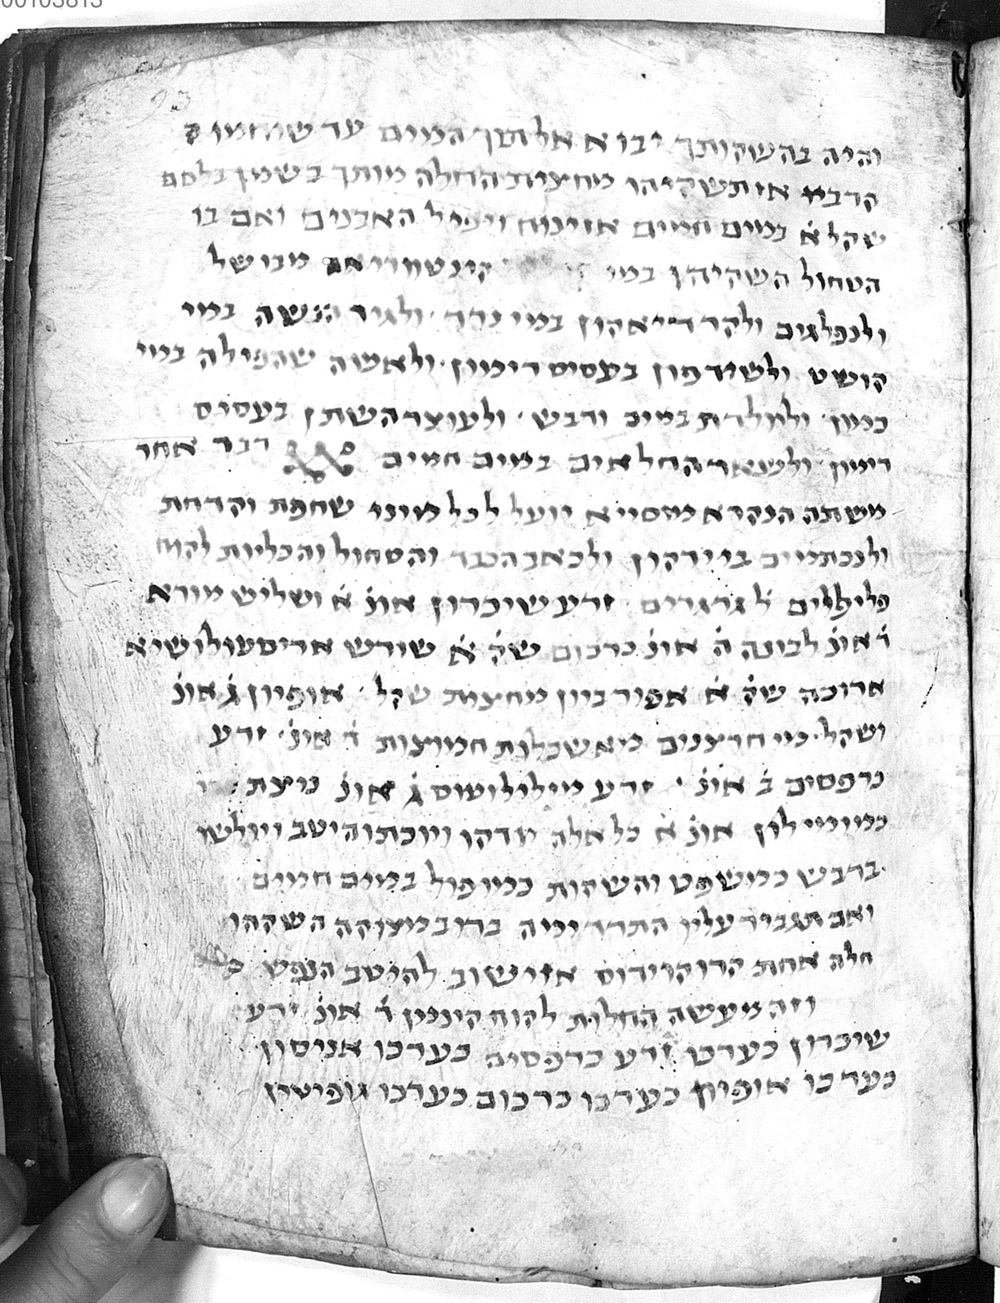 00103813
93
והיה בהשקותך יבוא אל תוך המים עד שיחמו
הדבר או תשקיהו מחצית החלה מותך בשמן בלסם
שקל א̇ במים חמים אז ינוח ויפיל האבנים ואם בו
הטחול השקיהן במי קינטווריאה מבושל
ולנפלגים ולקרדיאקון במי נרד ולגיד הנשה במי
קושט ולשידפון בעסיס רימון ולאשה שהפילה במי
כמון ולחלדת במים ודבש ולעוצר השתן בעסיס
רימון ולשאר החלאים במים חמים דבר אחר
משתה הנקרא מסייא יועיל לכל מיני שחפת וקדחת
ולנכתמים בירקון ולכאב הכבד והטחול והכליות לקוח
פלפלים ל̇ גרגרים זרע שיכרון אונ̇ א̇ ושליש מורא
ד̇ אונ̇ לבונה ה̇ אונ̇ כרכום שק̇ א̇ שורש אריסטולושיא
ארוכה שק̇ א̇ אפורביון מחצית שקל אופיון ג̇ אונ̇
ושקל מי חרצנים מאשכלות חמוצות ד̇ אונ̇ זרע
כרפסים ב̇ אונ̇ זרע מילילוטוס ג̇ אונ̇ נוצת
כמומילון אונ̇ א̇ כל אלה יודקו ויוכתו היטב ויולשו
בדבש כמשפט והשקות כמו פול במים חמים
ואם תגביר עליו התרדימה ברוב מצוקה השקהו
חלה אחת הרוקוידוס אז ישוב להיטב הנפש
וזה מעשה החלות לקוח קינמון ד̇ אונ̇ זרע
שיכרון כערכו זרע כרפסים כערכו אניסון
כערכו אופיון כערכו כרכום כערכו גופיטין